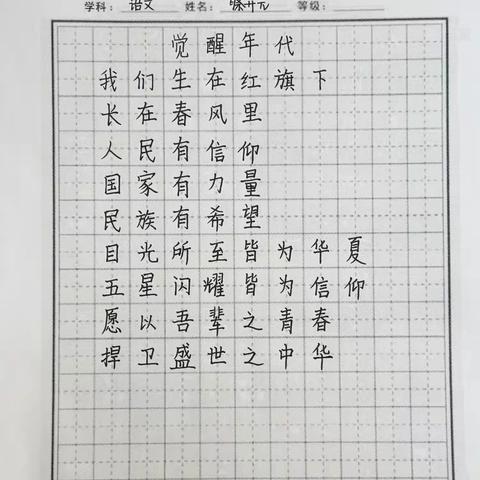 学科：语文 姓名： 等级：
觉醒年代
我们生在红旗下
长在春风里
人民有信仰
国家有力量
民族有希望
目光所至皆为华夏
五星闪耀皆为信仰
愿以吾辈之青春
捍卫盛世之中华